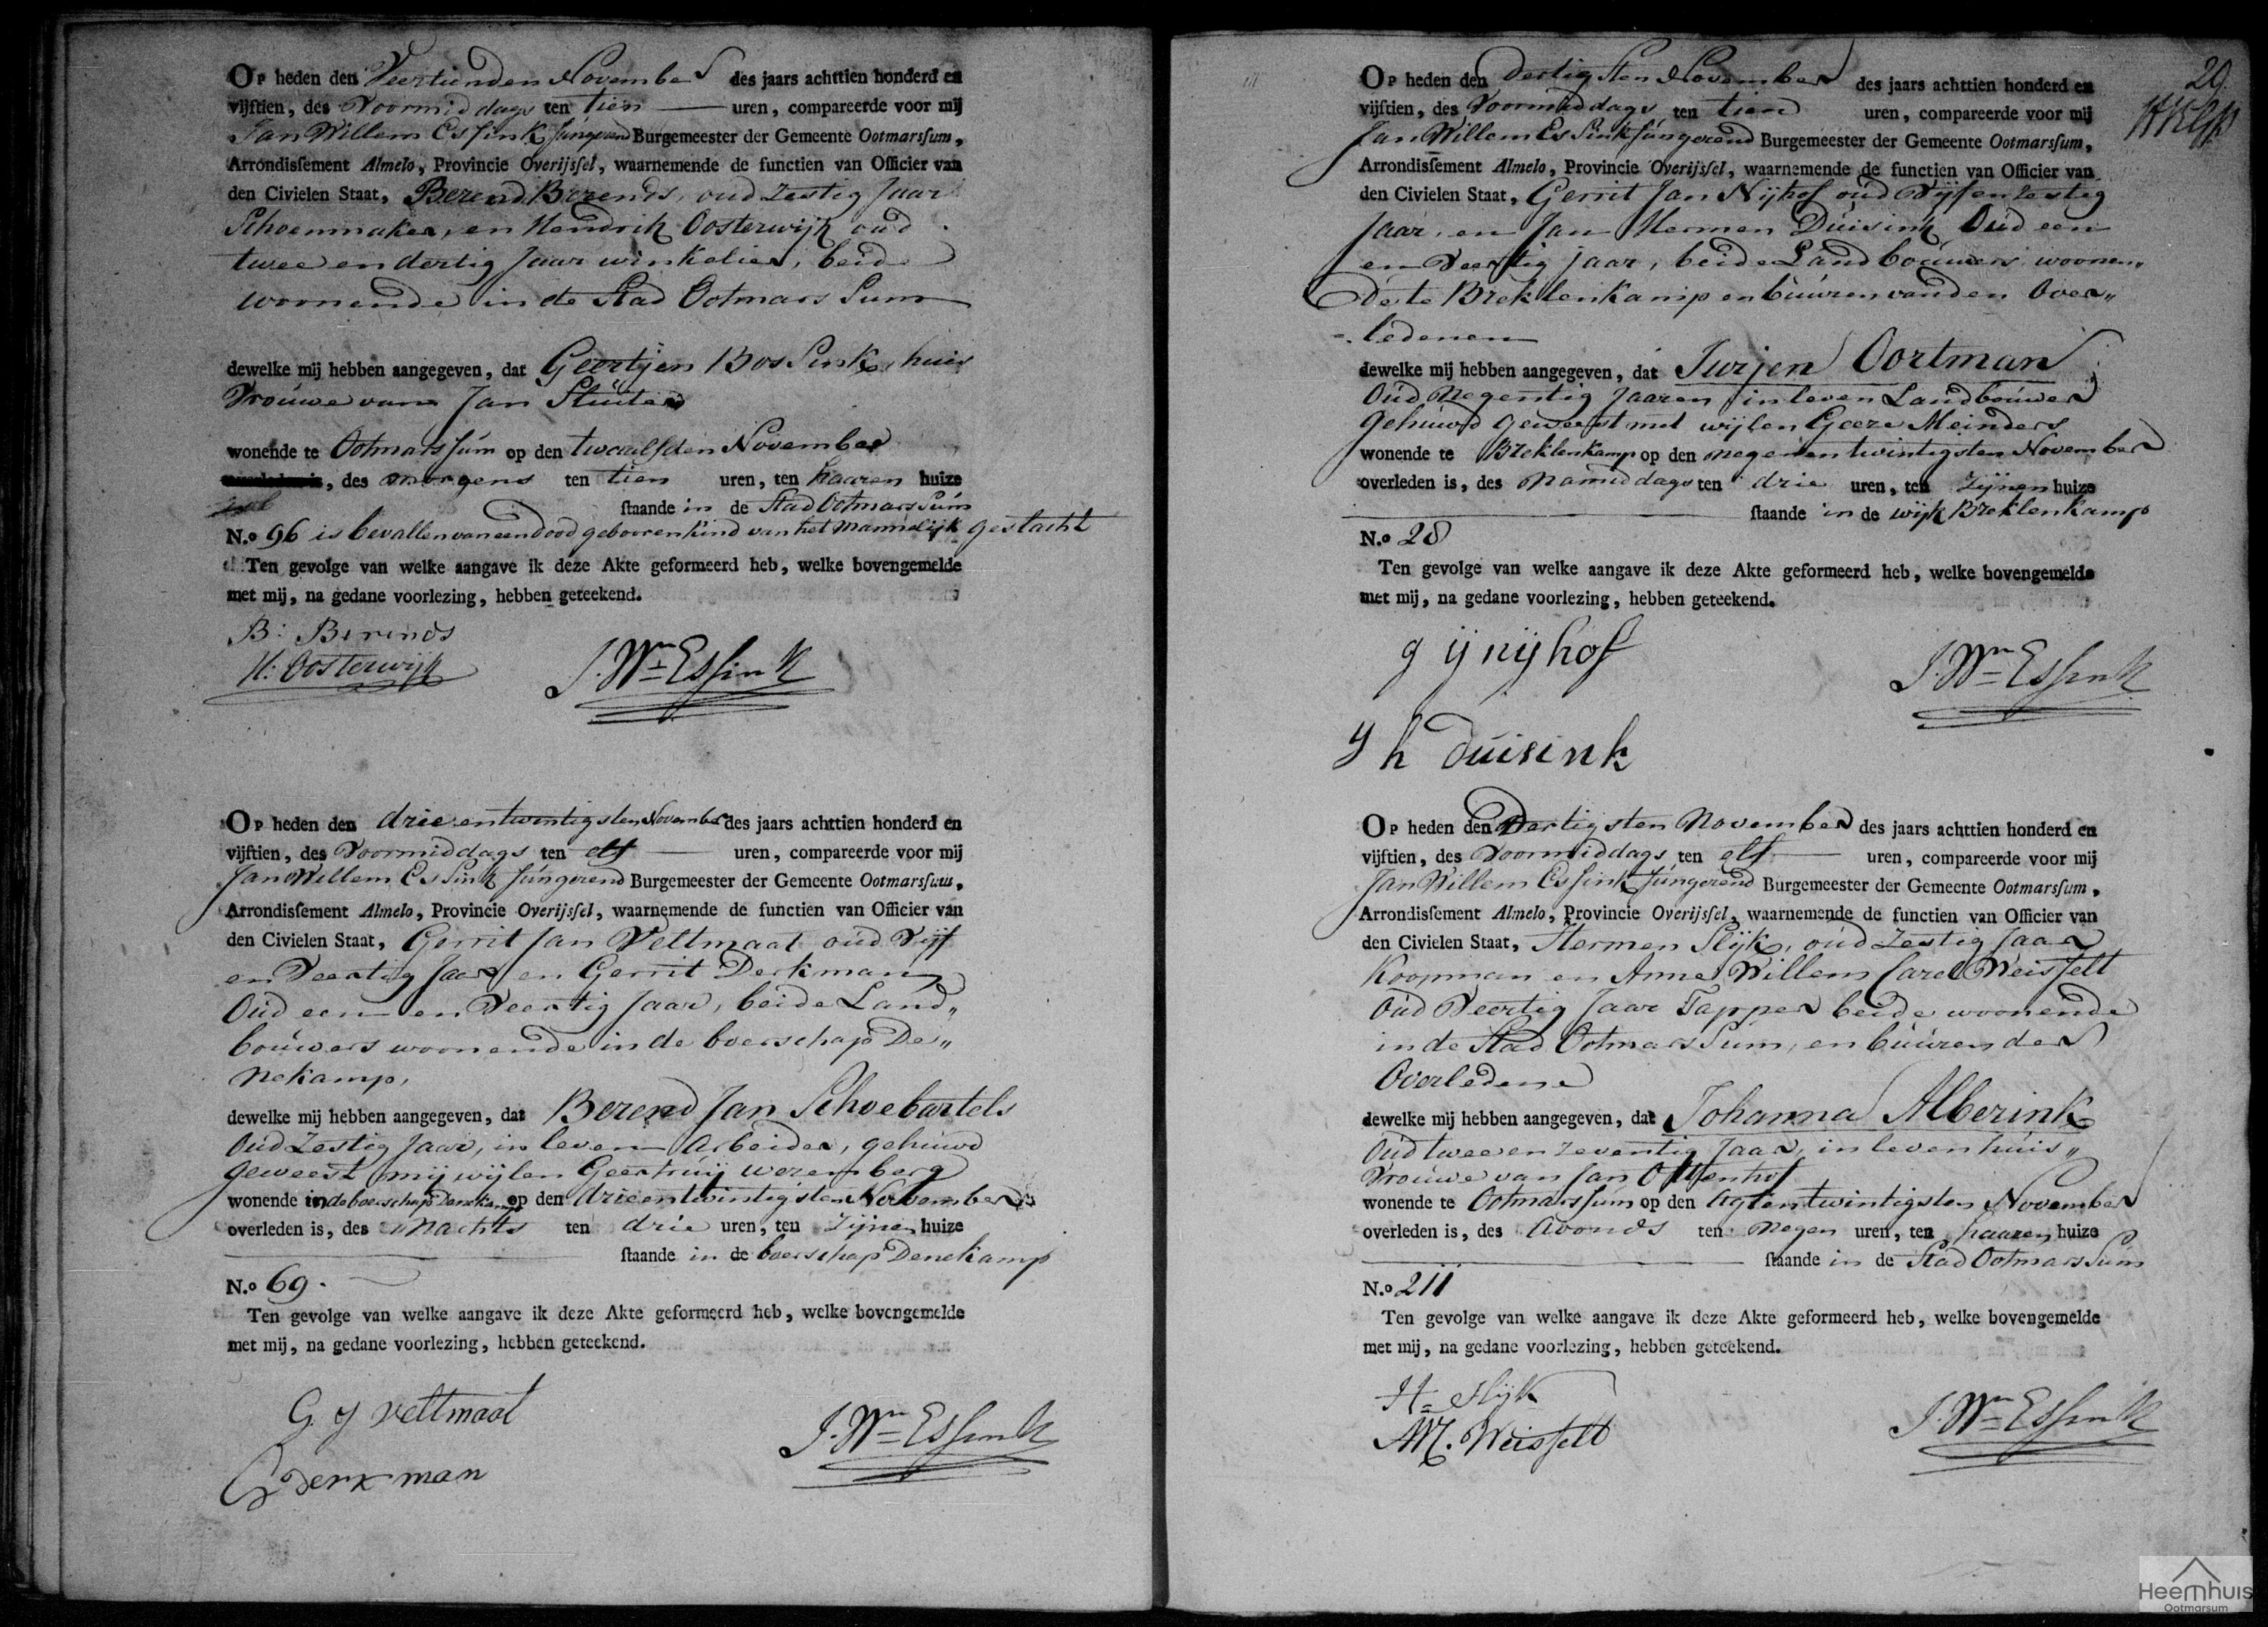 Op heden den Veertienden November des jaars achttien honderd en
vijftien, des Voormiddags ten tien uren, compareerde voor mij
Jan Willem Essink fungerend Burgemeester der Gemeente Ootmarsſum,
Arrondisſement Almelo, Provincie Overijsſel, waarnemende de functien van Officier van
den Civielen Staat, Berend Berends, oud Zestig Jaar
Schoenmaker, en Hendrik Oosterwijk oud
twee en dertig Jaar winkelier, beide
woonende in de Stad OotmarsSum
dewelke mij hebben aangegeven, dat Geertjen BosSink, huis
Vrouwe van Jan Sluiter
wonende te OotmarsSum op den twaalfden November
, des morgens ten tien uren, ten haaren huize
ſtaande in de Stad OotmarsSum
N.o 96 is bevallen van een dood gebooren kind van het mannelijk geslacht
Ten gevolge van welke aangave ik deze Akte geformeerd heb, welke bovengemelde
met mij, na gedane voorlezing, hebben geteekend.
B: Berends
H: Oosterwijk J. Wm Essink
Op heden den drie en twintigsten November des jaars achttien honderd en
vijftien, des Voormiddags ten elf uren, compareerde voor mij
Jan Willem EsSink fungerend Burgemeester der Gemeente Ootmarsſum,
Arrondisſement Almelo, Provincie Overijsſel, waarnemende de functien van Officier van
den Civielen Staat, Gerrit Jan Veltmaat oud Vijf
en Veertig Jaar en Gerrit Derkman
Oud een en Veertig Jaar, beide Land„
bouwers woonende in de boerschap De„
nekamp,
dewelke mij hebben aangegeven, dat Berend Jan Schoebartels
Oud Zestig Jaar, in leven Arbeider, gehuwd
geweest mij wijlen Geertruij weremberg
wonende in de boerschap Denekamp op den drie en twintigsten November
overleden is, des Nachts ten drie uren, ten Zijnen huize
ſtaande in de boerschap Denekamp
N.o 69.
Ten gevolge van welke aangave ik deze Akte geformeerd heb, welke bovengemelde
met mij, na gedane voorlezing, hebben geteekend.
G. J Veltmaat
G derkman J. Wm Essink
29.
Op heden den dertigSten November des jaars achttien honderd en
vijftien, des Voormiddags ten tien uren, compareerde voor mij
Jan Willem EsSink fungerend Burgemeester der Gemeente Ootmarsſum,
Arrondisſement Almelo, Provincie Overijsſel, waarnemende de functien van Officier van
den Civielen Staat, Gerrit Jan Nijhof oud Vijf en Zestig
Jaar, en Jan Hermen Duisink Oud een
en Veertig jaar, beide Landbouwers woonen„
de te Breklenkamp en buuren van den Over„
ledenen
dewelke mij hebben aangegeven, dat Jurjen Oortman
Oud Negentig Jaaren in leven Landbouwer
Gehuwd geweest met wijlen Geeze Meinders
wonende te Breklenkamp op den negen en twintigsten November
overleden is, des Namiddags ten drie uren, ten Zijnen huize
ſtaande in de wijk Breklenkamp
N.o 28
Ten gevolge van welke aangave ik deze Akte geformeerd heb, welke bovengemelde
met mij, na gedane voorlezing, hebben geteekend.
g ij nijhof J. Wm Essink
J h duisink
Op heden den Dertigsten November des jaars achttien honderd en
vijftien, des Voormiddags ten elf uren, compareerde voor mij
Jan Willem Essink fungerend Burgemeester der Gemeente Ootmarsſum,
Arrondisſement Almelo, Provincie Overijsſel, waarnemende de functien van Officier van
den Civielen Staat, Hermen Slijk, oud Zestig Jaar
Koopman en Anne Willem Carel Weisfelt
Oud Veertig Jaar Tapper beide woonende
in de Stad OotmarsSum, en buuren der
Overledene
dewelke mij hebben aangegeven, dat Johanna Alberink
Oud twee en zeventig Jaar, in leven huis„
Vrouwe van Jan Ottenhof
wonende te Ootmarssum op den agt en twintigsten November
overleden is, des Avonds ten negen uren, ten haaren huize
ſtaande in de Stad OotmarsSum
N.o 211
Ten gevolge van welke aangave ik deze Akte geformeerd heb, welke bovengemelde
met mij, na gedane voorlezing, hebben geteekend.
H= Slijk
Weisfelt J. Wm Essink
Heemhuis
Ootmarsum